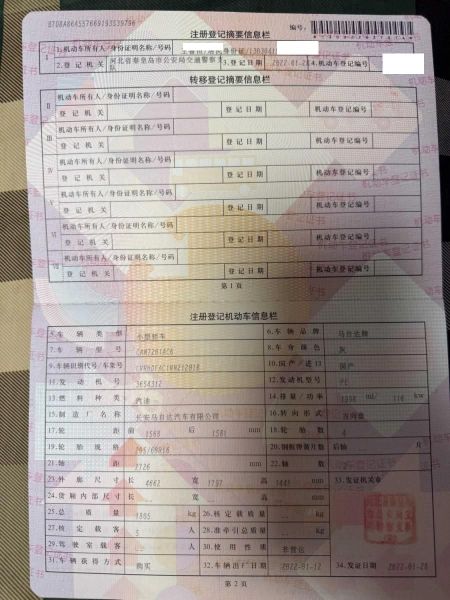 注册登记摘要信息栏
编号:
I
1.机动车所有人/身份证明名称/号码
居民身份证
2.登记机关
河北省秦皇岛市公安局交通警察支队
3.登记日期
4.机动车登记编号
转移登记摘要信息栏
II
机动车所有人/身份证明名称/号码
登记机关 登记日期 机动车登记编号
III
机动车所有人/身份证明名称/号码
登记机关 登记日期 机动车登记编号
IV
机动车所有人/身份证明名称/号码
登记机关 登记日期 机动车登记编号
V
机动车所有人/身份证明名称/号码
登记机关 登记日期 机动车登记编号
VI
机动车所有人/身份证明名称/号码
登记机关 登记日期 机动车登记编号
VII
机动车所有人/身份证明名称/号码
登记机关 登记日期 机动车登记编号
第1页
注册登记机动车信息栏
5.车辆类型 小型轿车 6.车辆品牌 马自达牌
7.车辆型号 8.车身颜色 灰
9.车辆识别代号/车架号 10.国产/进口 国产
11.发动机号 12.发动机型号
13.燃料种类 汽油 14.排量/功率 1998 ml/ 116 kw
15.制造厂名称 长安马自达汽车有限公司 16.转向形式 方向盘
17.轮距 前 1568 后 1581 mm 18.轮胎数 4
19.轮胎规格 20.钢板弹簧片数 后轴 片
21.轴距 2726 mm 22.轴数 2
23.外廓尺寸 长 4662 宽 1797 高 1445 mm 33.发证机关章
24.货厢内部尺寸 长 宽 高 mm
25.总质量 kg 26.核定载质量 kg
27.核定载客 5 人 28.准牵引总质量 kg
29.驾驶室载客 人 30.使用性质 非营运
31.车辆获得方式 购买 32.车辆出厂日期 2022-01-12 34.发证日期
第2页